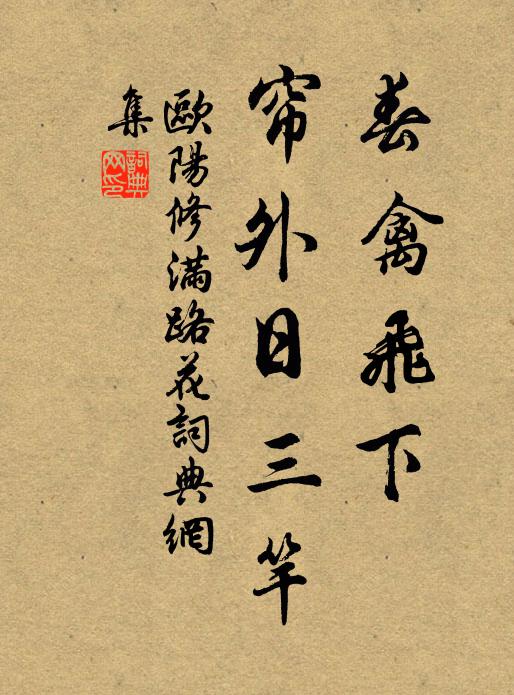 春禽飛下
帘外日三竿
歐陽修滿路花詞典網
集
詞典網印